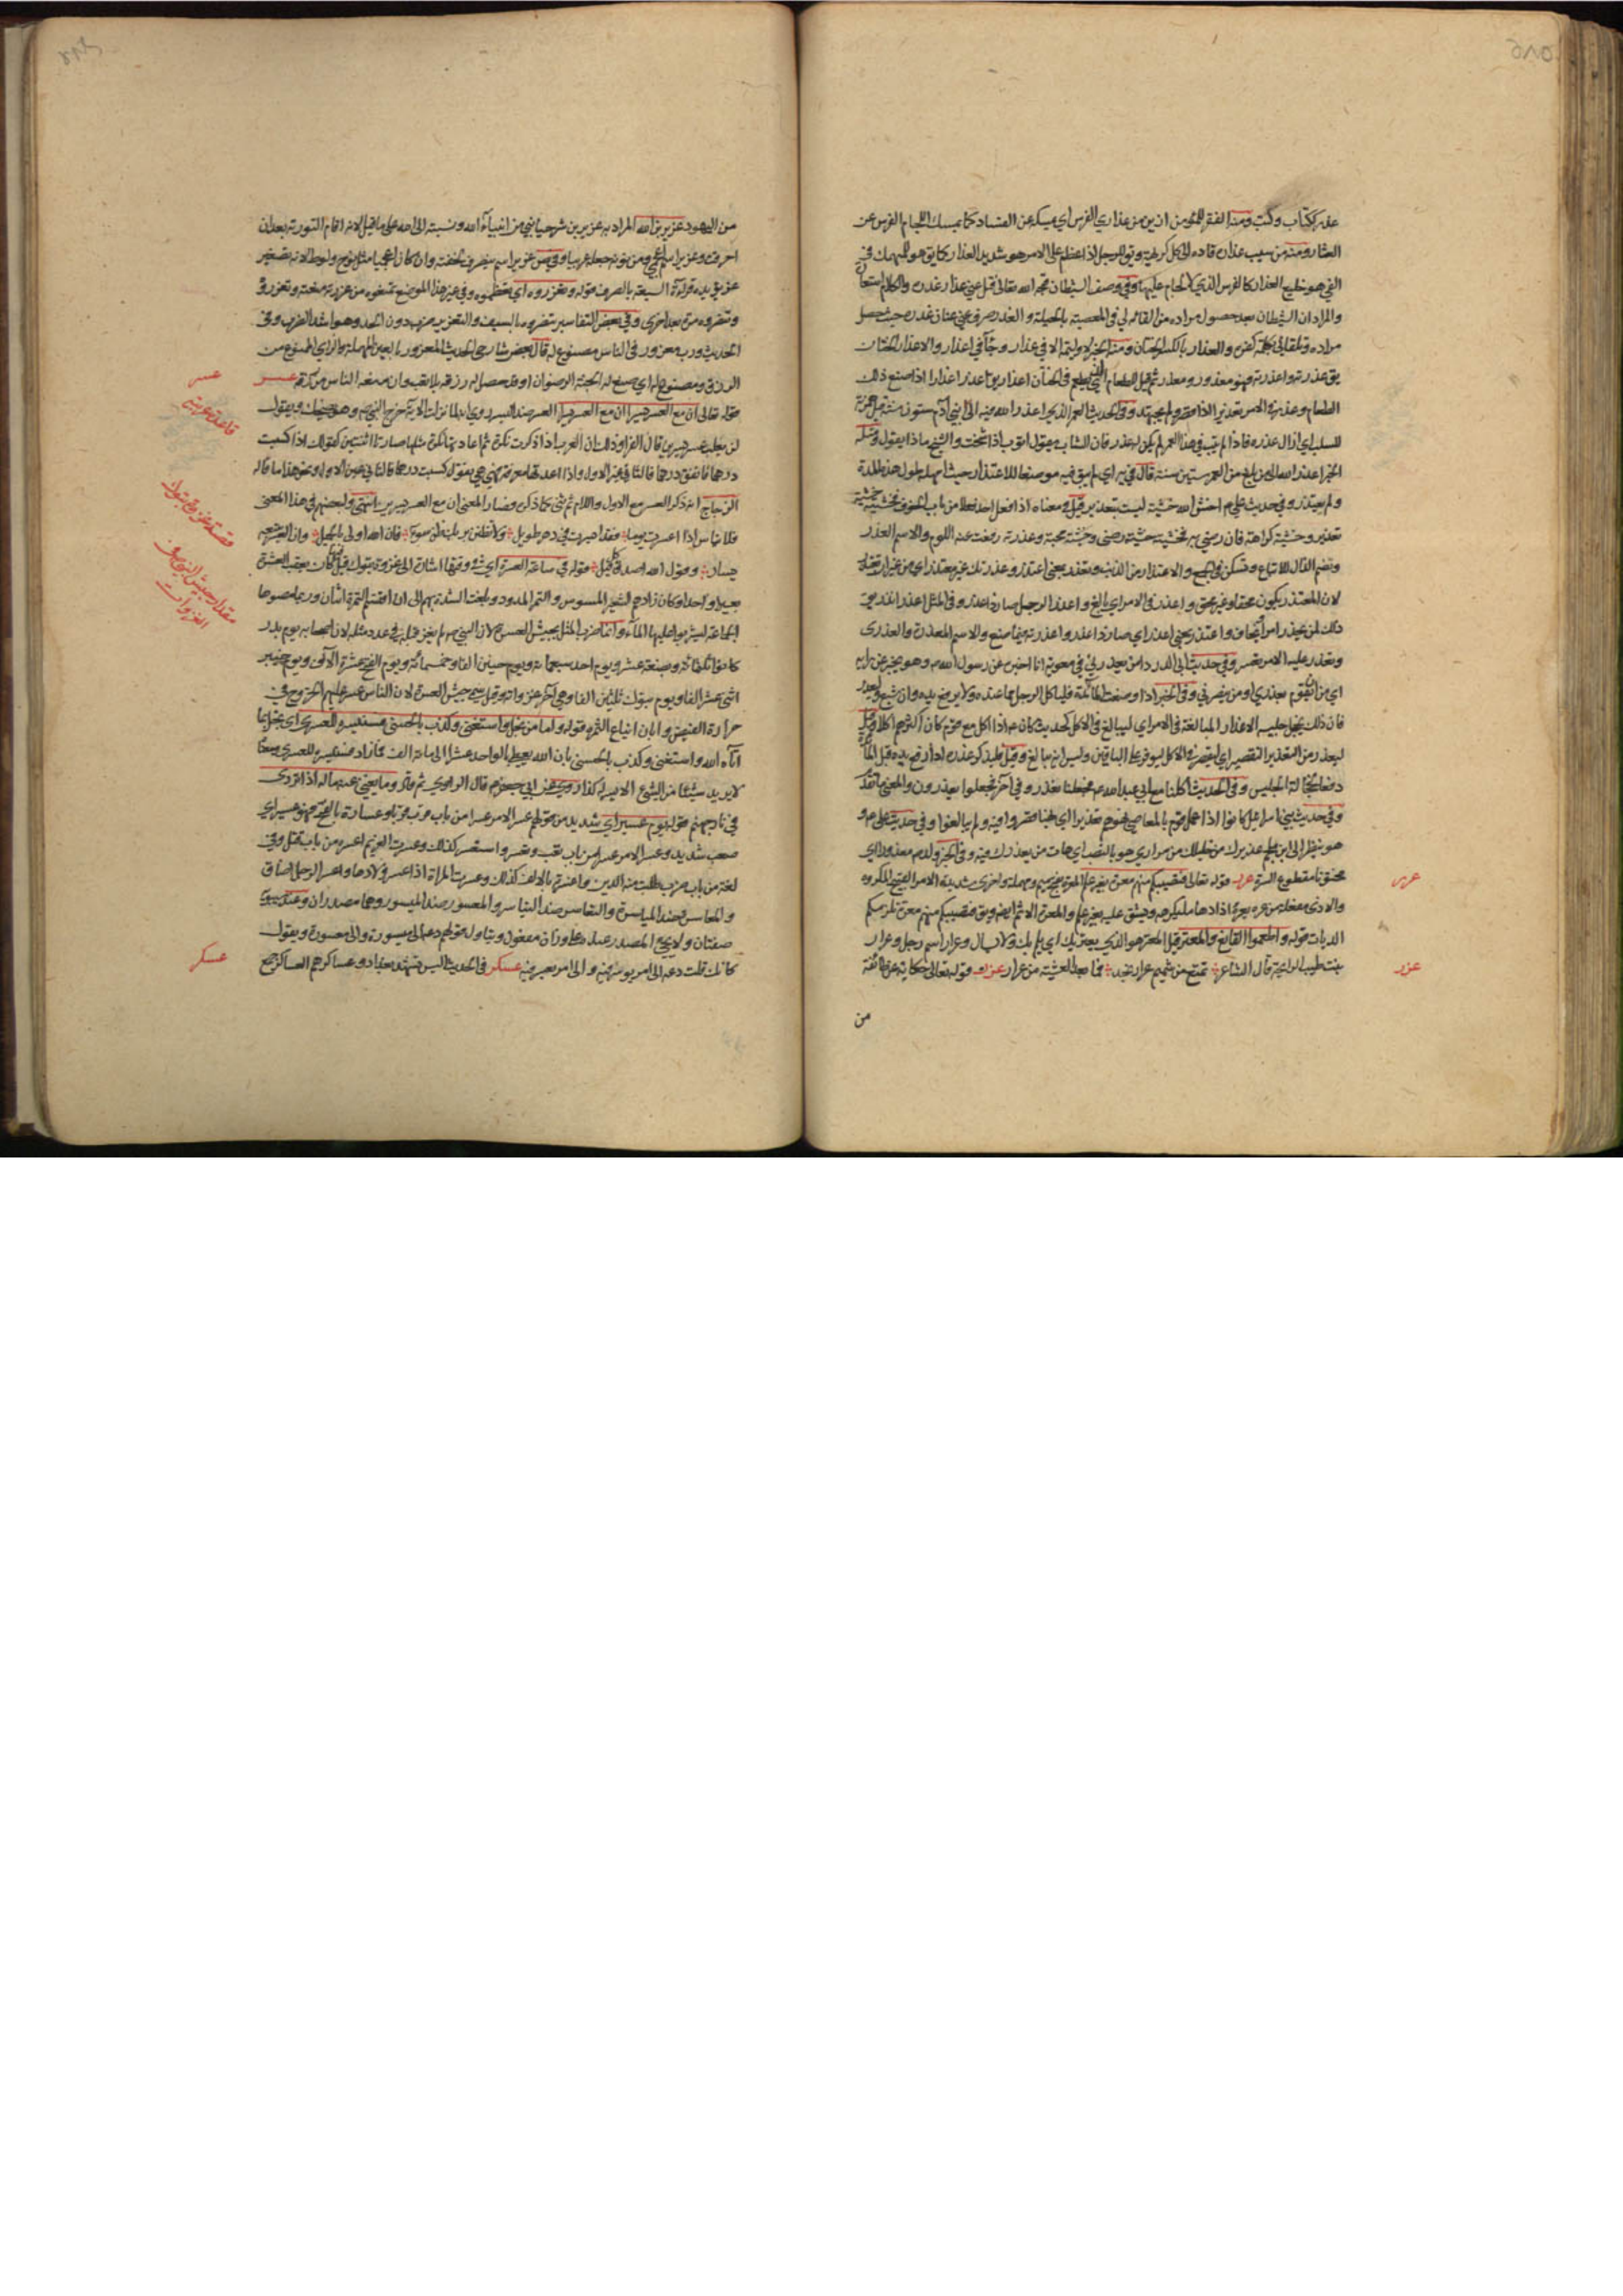 عذر ككتاب وكتب ومنه الفقر للمؤمن ازين من عذاري الفرس اي يمسكه عن الفساد كما يمسك اللجام الفرس عن
العثار ومنه من سيب عذاره قاده الى كل كريهة ويق للرجل اذا عظم على الامر هو شديد العذار كما يق هو للمنهمك في
الغي هو خليع العذار كالفرس الذي لا لجام عليها وفي وصف الشيطان قبحه الله تعالى فتل عني عذار غدره والكلام استعارة
والمراد ان الشيطان بعد حصول مراده من القائه لي في المعصية بالحيلة و الغدر صرف عني عنان غدره حيث حصل
مراده وتلقاني بكلمة كفره والعذار بالكسر الختان ومنه الخبر لا وليمة الا في عذار وجاء في اعذار والاعذار الختان
يق عذرته واعذرته فهو معذور ومعذر ثم قيل للطعام الذي يطعم في الختان اعذار يق اعذر اعذارا اذا صنع ذلك
الطعام وعذر في الامر تعذيرا اذا قصر ولم يجتهد وفي الحديث العمر الذي اعذر الله فيه الى ابن ادم ستون سنة قيل همزته
للسلب اي ازال عذره فاذا لم يتب في هذا العمر لم يكن له عذر فان الشاب يقول اتوب اذا شخت والشيخ ماذا يقول ومثله
الخبر اعذر الله الى من بلغ من العمر ستين سنة قال في يه اي لم يبق فيه موضعا للاعتذار حيث امهله طول هذه المدة
ولم يعتذر وفي حديث علي م اخش الله خشية ليست بتعذير قيل ومعناه اذا فعل احد فعلا من باب الخوف فخشيته خشية
تعذير وخشية كراهة فان رضي به فخشيته خشية رضى وخشية محبة وعذرته رفعت عنه اللوم والاسم العذر
وتضم الذال للاتباع وتسكن في الجمع والاعتذار من الذنب وتعذر بمعنى اعتذر وعذرتك غير معتذر اي من غير ان تعتذر
لان المعتذر يكون محقا وغير محق واعذر في الامر اي بالغ واعذر الرجل صار ذا عذر وفي المثل اعذر من انذر يق
ذلك لمن يحذر امرا يخاف واعتذر بمعنى اعذر اي صار ذا عذر واعذرته فيما صنع والاسم المعذرة والعذرى
وتعذر عليه الامر تعسر وفي حديث ابي الدرداء من يعذرني في معوية انا اخبره عن رسول الله ص وهو يخبر عن رايه
اي من يقوم بعذري او من ينصرني وفي الخبر اذا وضعت المائدة فلياكل الرجل مما عنده ولا يرفع يده وان شبع وليعذر
فان ذلك يخجل جليسه الاعذار المبالغة في الامر اي ليبالغ في الاكل كحديث كان ع اذا اكل مع قوم كان اكثرهم اكلا وقيل
ليعذر من التعذير التقصير اي ليقصر في الاكل ليوفر على الباقين ولير انه يبالغ وقيل فليذكر عذره اذا رفع يده قبل المائدة
دفعا لخجالة الجليس وفي الحديث اكلنا مع ابي عبد الله ع فجعلنا نعذر وفي آخر فجعلوا يعذرون والمعنى ما تقدم
وفي حديث بني اسرائيل كانوا اذا عمل قوم بالمعاصي نهوهم تعذيرا اي نهيا قصروا فيه ولم يبالغوا وفي حديث علي م و
هو ينظر الى ابن ملجم عذيرك من خليلك من مراد هو بالنصب اي هات من يعذرك فيه وفي الخبر ولد ص معذورا اي
مختونا مقطوع السرة عرر قوله تعالى فتصيبكم منهم معرة بغير علم المعرة بفتح ميم ومهملة واخرى شديدة الامر القبيح المكروه
والاذى مفعلة من عره يعره اذا دهاه بما يكرهه ويشق عليه بغير علم والمعرة الاثم ايضا ويق فتصيبكم منهم معرة تلزمكم
الديات قوله واطعموا القانع والمعتر قيل المعتر هو الذي يعتريك اي يلم بك ولا يسال وعرار اسم رجل وعرار
نبت طيب الرائحة قال الشاعر تمتع من شميم عرار نجد فما بعد العشية من عرار عزر قوله تعالى حكاية عن طائفة
من
عرر
عزر
من اليهود عزير بن الله المراد به عزير بن شرحيا نبي من انبياء الله ونسبته الى الله على ما قيل لانه اقام التورية بعد ان
احرقت وعزير اسم اعجمي ومن نونه جعله عربيا وفي ص عزير اسم ينصرف لخفته وان كان اعجميا مثل نوح ولوط لانه تصغير
عزر يؤيده قراءة السبعة بالصرف قوله وتعزروه اي تعظموه وفي غير هذا الموضع تمنعوه من عزرته منعته وتعزروه
وتنصروه مرة بعد اخرى وفي بعض التفاسير تنصروه بالسيف والتعزير ضرب دون الحد وهو اشد الضرب وفي
الحديث ورب معزور في الناس مصنوع له قال بعض شارحي الحديث المعزور بالعين المهملة والزاي الممنوع من
الرزق ومصنوع له اي صنع له الجنة الرضوان او قد حصل له رزقه بلا تعب وان منعه الناس من رزقه عسر
قوله تعالى ان مع العسر يسرا ان مع العسر يسرا العسر ضد اليسر روي انه لما نزلت الاية خرج النبي ص وهو يضحك ويقول
لن يغلب عسر يسرين قال الفراء وذلك ان العرب اذا ذكرت نكرة ثم اعادتها نكرة مثلها صارتا اثنتين كقولك اذا كسبت
درهما فانفق درهما فالثاني غير الاول واذا اعدتها معرفة فهي هي بقوله كسبت درهما فالثاني عين الاول ونحو هذا ما قاله
الزجاج انه ذكر العسر مع الالف واللام ثم ثنى ذكره فصار المعنى ان مع العسر يسرين انتهى ولبعضهم في هذا المعنى
فلا تياس اذا اعسرت يوما فقد ايسرت في دهر طويل ولا تظنن بربك ظن سوء فان الله اولى بالجميل وان العسر يتبعه
يسار وقول الله اصدق كل قيل قوله في ساعة العسرة اي في وقتها اشارة الى غزوة تبوك قيل كان يعقب العشرة
بعيرا واحدا وكان زادهم الشعير المسوس والتمر المدود وبلغت الشدة بهم الى ان اقتسم التمرة اثنان وربما مصوها
الجماعة ليشربوا عليها الماء وانما ضرب المثل بجيش العسرة لان النبي ص لم يغز قبله في عدد مثله لان اصحابه يوم بدر
كانوا ثلثمائة وبضعة عشر ويوم احد سبعمائة ويوم حنين الفا وخمسمائة ويوم الفتح عشرة الآف ويوم خيبر
اثني عشر الفا ويوم تبوك ثلثين الفا وهي آخر غزواته وقيل سمي جيش العسرة لان الناس عسر عليهم الخروج في
حرارة القيظ وابان ايناع الثمرة قوله واما من بخل واستغنى وكذب بالحسنى فسنيسره للعسرى اي بخل بما
آتاه الله واستغنى وكذب بالحسنى بان الله يعطي بالواحد عشرا الى مائة الف فما زاد فسنيسره للعسرى
لا يريد شيئا من الشر الا يسر له كذا روي عن ابي جعفر م قال الراوي ثم قال وما يغني عنه ماله اذا تردى
في نار جهنم قوله يوم عسير اي شديد من قولهم عسر الامر عسرا من باب قرب وعسارة بالفتح فهو عسير اي
صعب شديد وعسر الامر عسرا من باب تعب وتعسر واستعسر كذلك وعسرت الغريم اعسره من باب قتل وفي
لغة من باب ضرب طلبت منه الدين واعسرته بالالف كذلك وعسرت المراة اذا عسر ولادها واعسر الرجل اضاق
والمعاسرة ضد المياسرة والتعاسر ضد التياسر والمعسور ضد الميسور وهما مصدران وعند سيبويه
صفتان ولا يجيء المصدر عنده على وزان مفعول ويتاول قولهم دعه الى ميسوره والى معسوره ويقول
كانك قلت دعه الى امر يوسر فيه والى امر يعسر فيه عسكر في الحديث اليس تشهد بغداد وعساكرهم العساكر جمع
عسر
قاعدة عربية
قصة غزوة تبوك
مقدار جيش النبي ص في الغزوات
عسكر